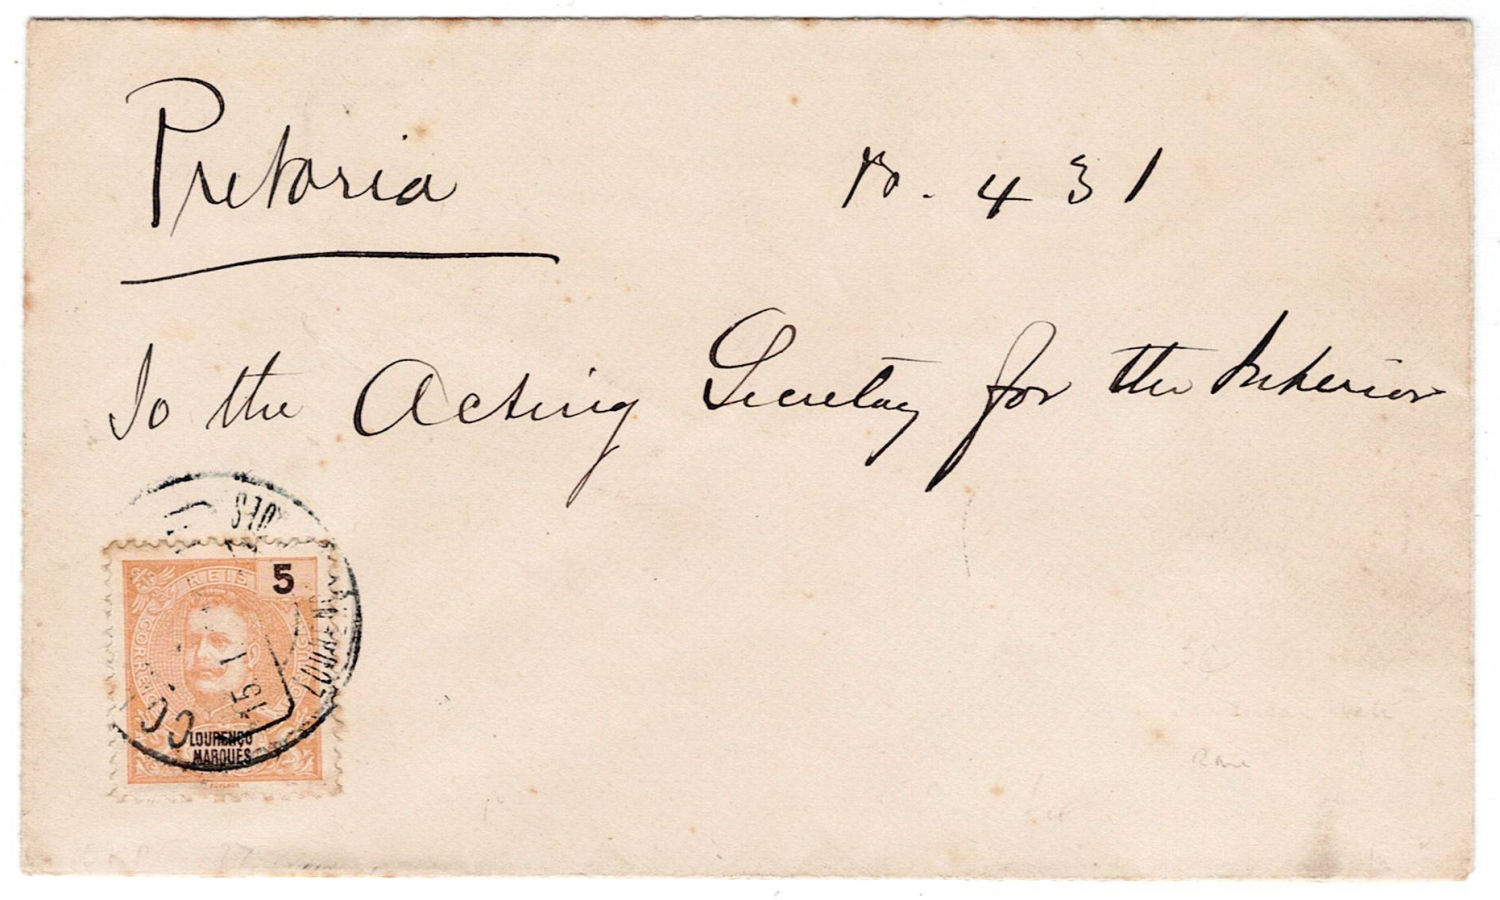 Pretoria
No. 431
To the Acting Secretary for the Interior
REIS
5
CORREIO
LOURENÇO
MARQUES
15
LOURENÇO